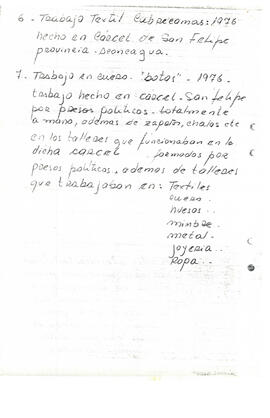 6 - Trabajo Textil Cubrecamas: 1976
hecho en Cárcel de San Felipe
provincia - Aconcagua.
7 - Trabajo en cuero "botas" - 1976 -
trabajo hecho en carcel - San felipe
por presos políticos - totalmente
a mano, ademas de zapatos, chalas etc
en los talleres que funcionaban en la
dicha carcel formados por
presos políticos, ademas de talleres
que trabajaban en: Textiles
cuero..
huesos..
mimbre..
metal..
joyeria..
Ropa..